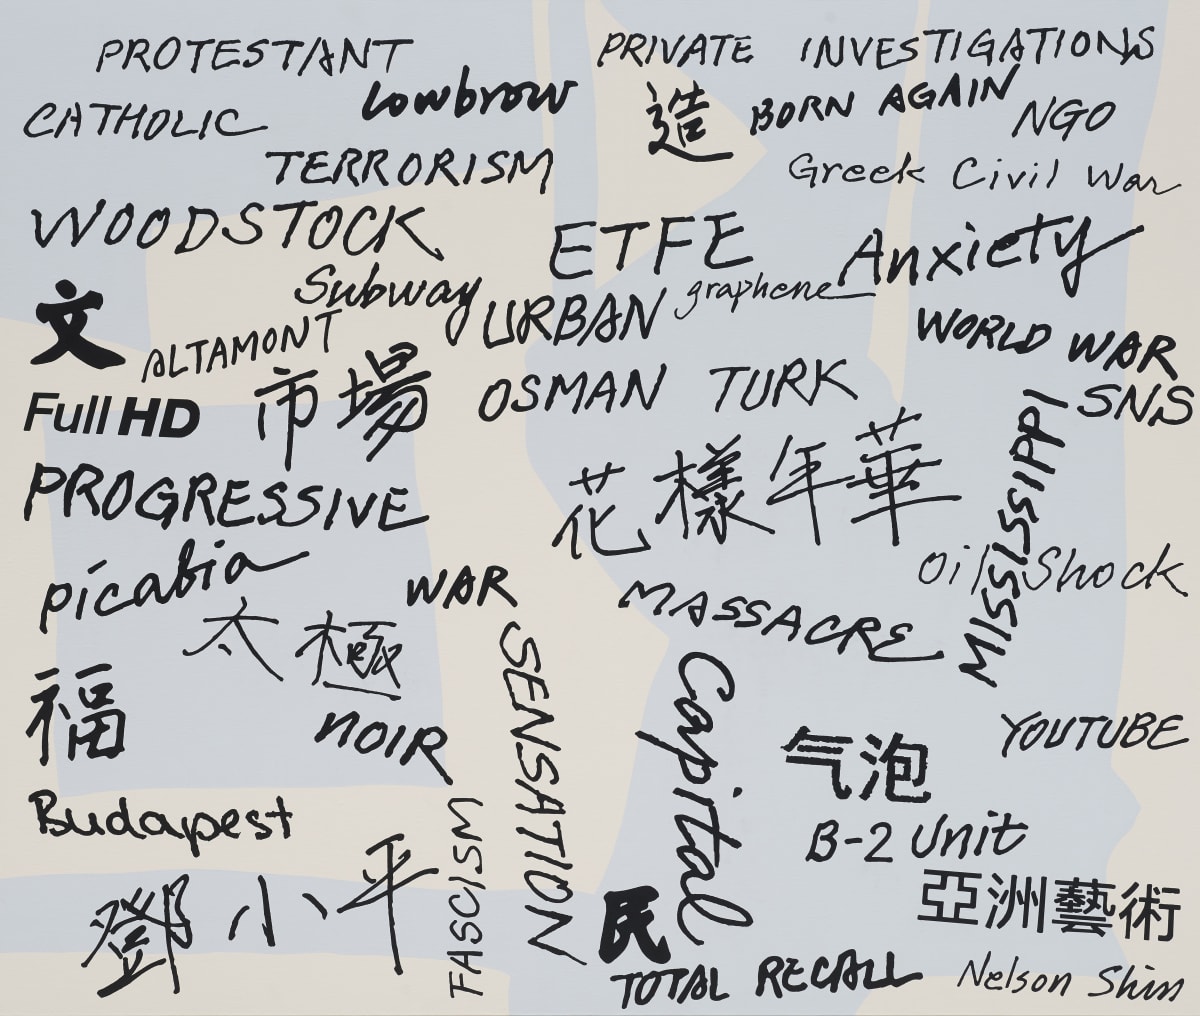 PROTESTANT
PRIVATE INVESTIGATIONS
CATHOLIC
Lowbrow
造
BORN AGAIN
NGO
TERRORISM
Greek Civil War
WOODSTOCK
ETFE
Anxiety
Subway
graphene
文
ALTAMONT
URBAN
WORLD WAR
Full HD
市場
OSMAN TURK
SNS
MISSISSIPPI
PROGRESSIVE
花樣年華
picabia
WAR
Oil Shock
太極
MASSACRE
SENSATION
福
NOIR
Capital
气泡
YOUTUBE
Budapest
FASCISM
B-2 Unit
鄧小平
民
亞洲藝術
TOTAL RECALL
Nelson Shin